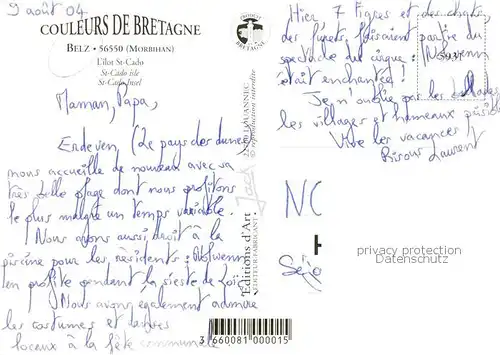 9 août 04
COULEURS DE BRETAGNE
BELZ • 56550 (MORBIHAN)
L'îlot St-Cado
St-Cado isle
St-Cado Insel
Maman, Papa,
Erdeven, (Le pays des dunes)
nous accueille de nouveau avec sa
très belle plage dont nous profitons
le plus malgré un temps variable.
Nous avons aussi droit à la
piscine pour les résidents :
en profite pendant la sieste de Loïc
Nous avons également admiré
les costumes et danses
locaux à la fête communale.
Hier, 7 Tigres et des chats,
des furets, faisaient partie du
spectacle du cirque :
était enchantée !
J'en n'oublie pas les
les villages et hameaux
Vive les vacances !
Bisous Laurent
Jack
Editions d'Art
EDITEUR-FABRICANT
reproduction interdite
NC
privacy protection
Datenschutz
3 660081 000015